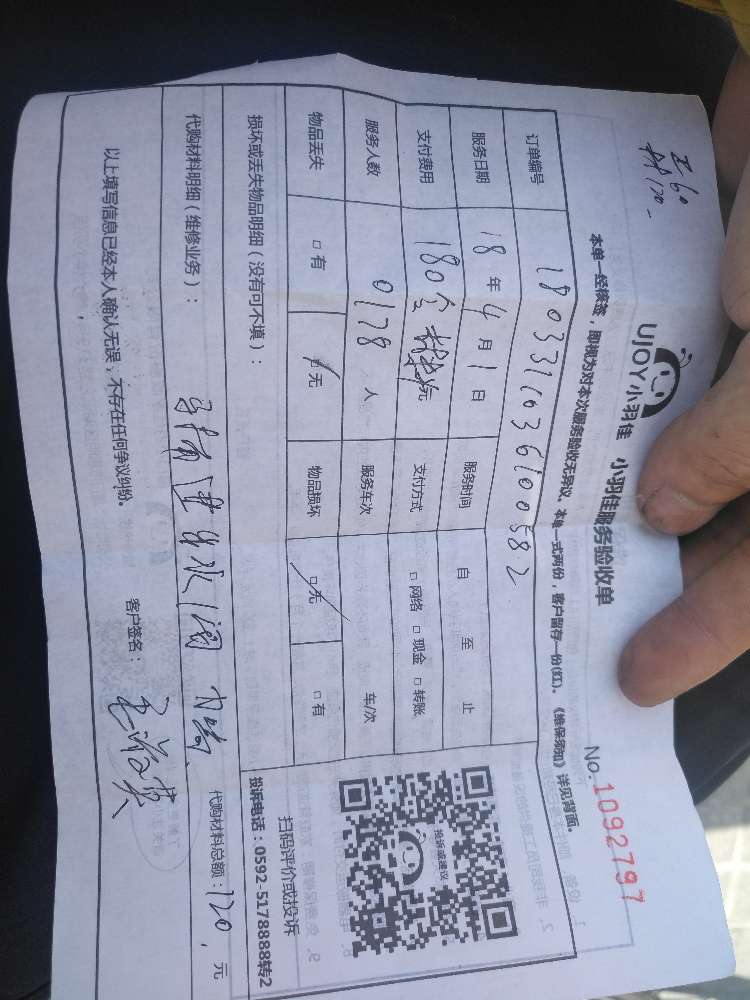 工60
材120
UJOY小羽佳 小羽佳服务验收单
No.1092797
本单一经核签，即视为对本次服务验收无异议。本单一式两份，客户留存一份(红)。《维保须知》详见背面。
订单编号 18033110361 00582
服务日期 18年4月1日 服务时间 自 至 止
支付费用 180 支付方式 □网络 □现金 □转账
服务人数 0178 人 服务车次 车/次
物品丢失 □有 □无 物品损坏 □无 □有
损坏或丢失物品明细（没有可不填）：
投诉或建议
扫码评价或投诉
投诉电话：0592-5178888转2
代购材料明细（维修业务）：
进水阀
代购材料总额：120.元
以上填写信息已经本人确认无误，不存在任何争议纠纷。
客户签名：